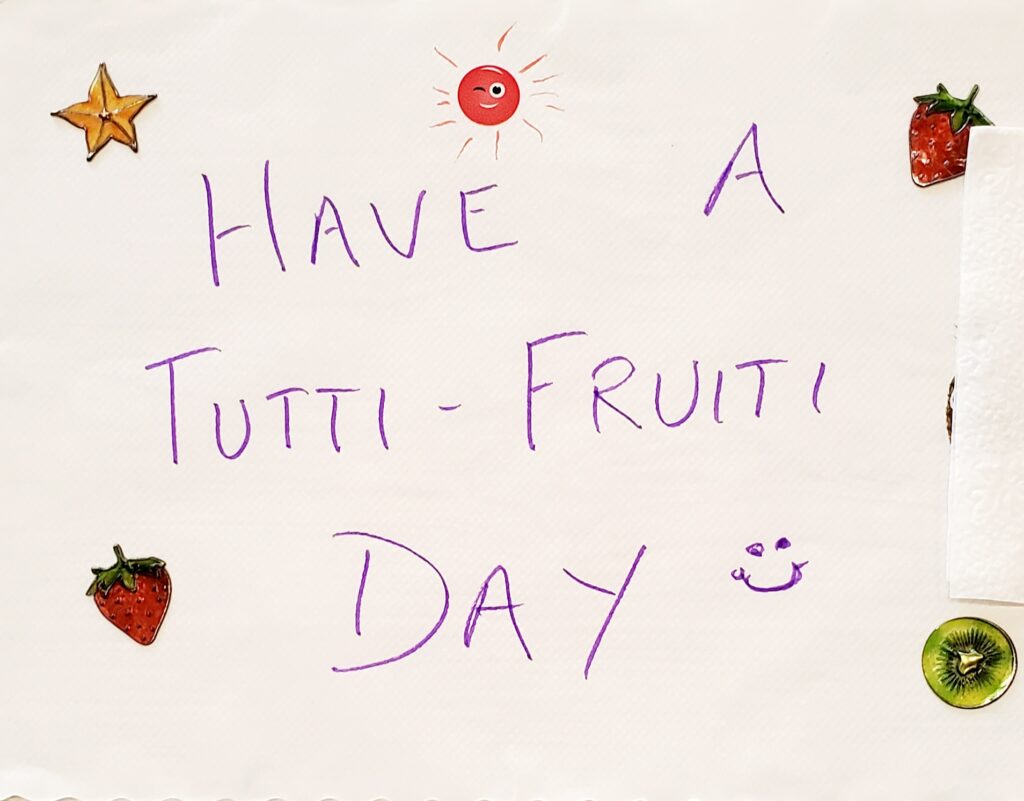 HAVE A
TUTTI-FRUITI
DAY